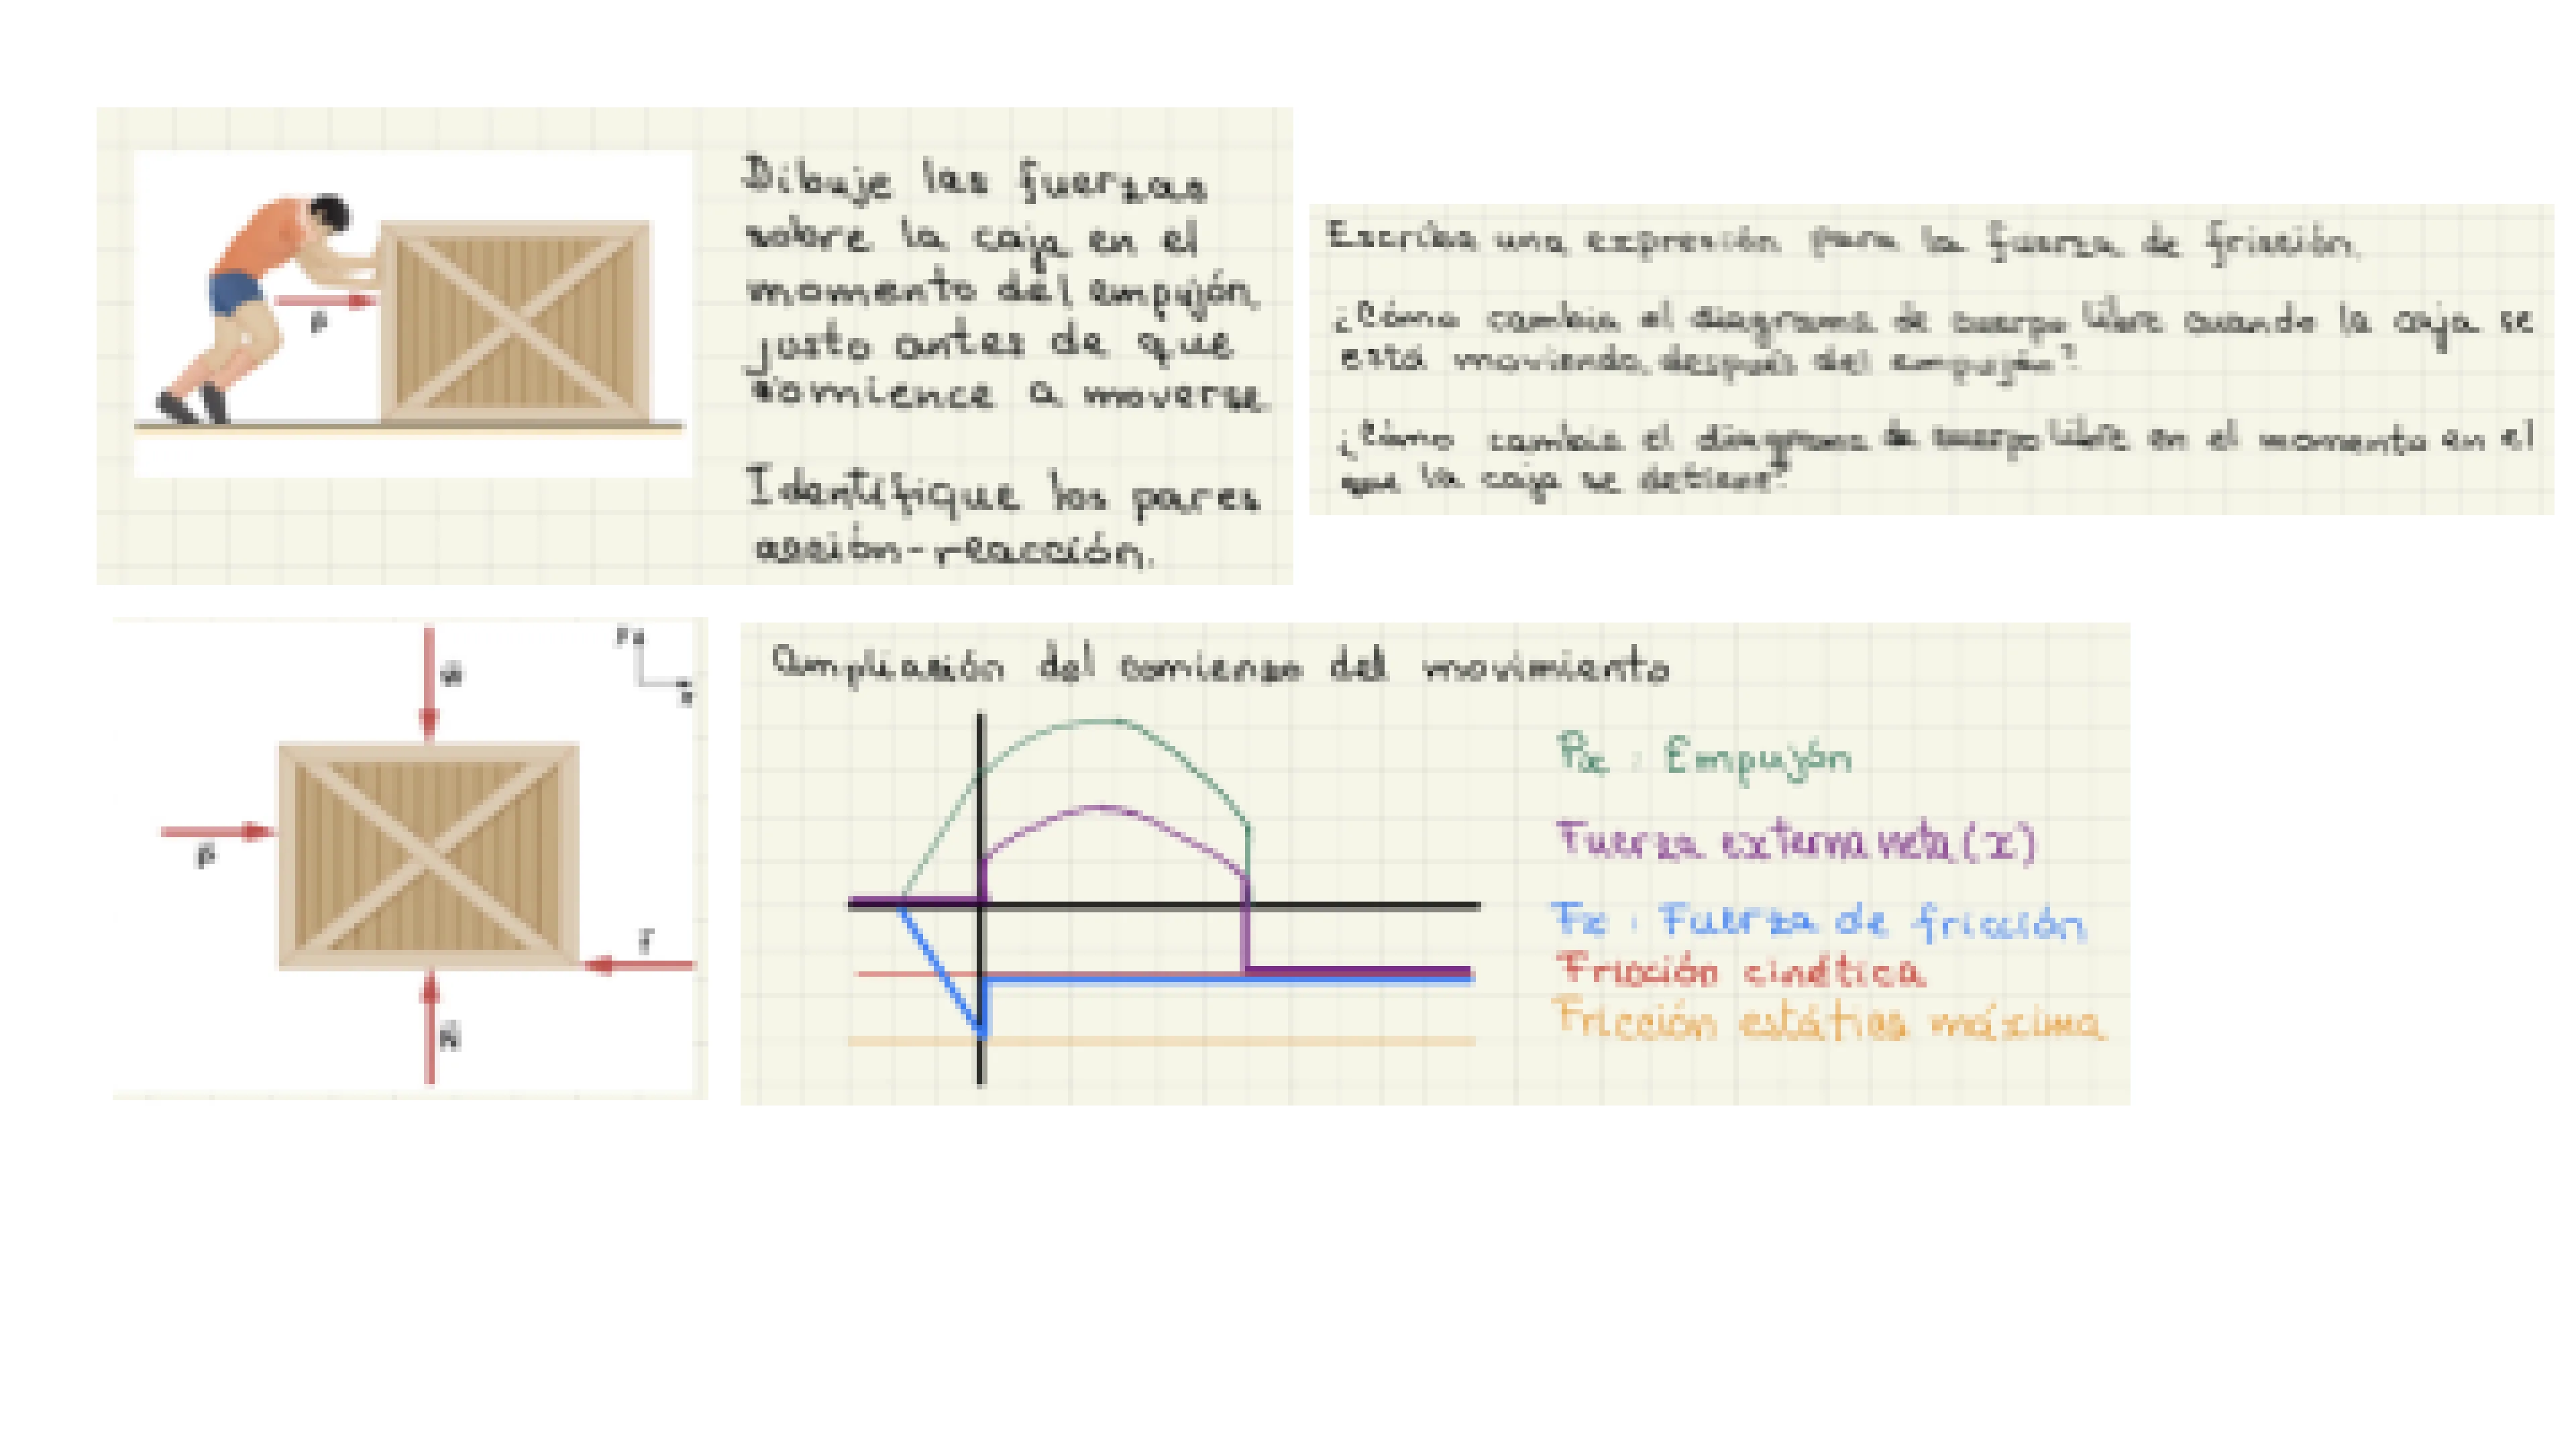 Dibuje las fuerzas
sobre la caja en el
momento del empujón,
justo antes de que
comience a moverse
Identifique los pares
acción-reacción.
P
Escriba una expresión para la fuerza de fricción.
¿Cómo cambia el diagrama de cuerpo libre cuando la caja se
está moviendo, después del empujón?
¿Cómo cambia el diagrama de cuerpo libre en el momento en el
que la caja se detiene?
P
N
Ampliación del comienzo del movimiento
Px : Empujón
Fuerza externa neta (x)
Fx : Fuerza de fricción
Fricción cinética
Fricción estática máxima